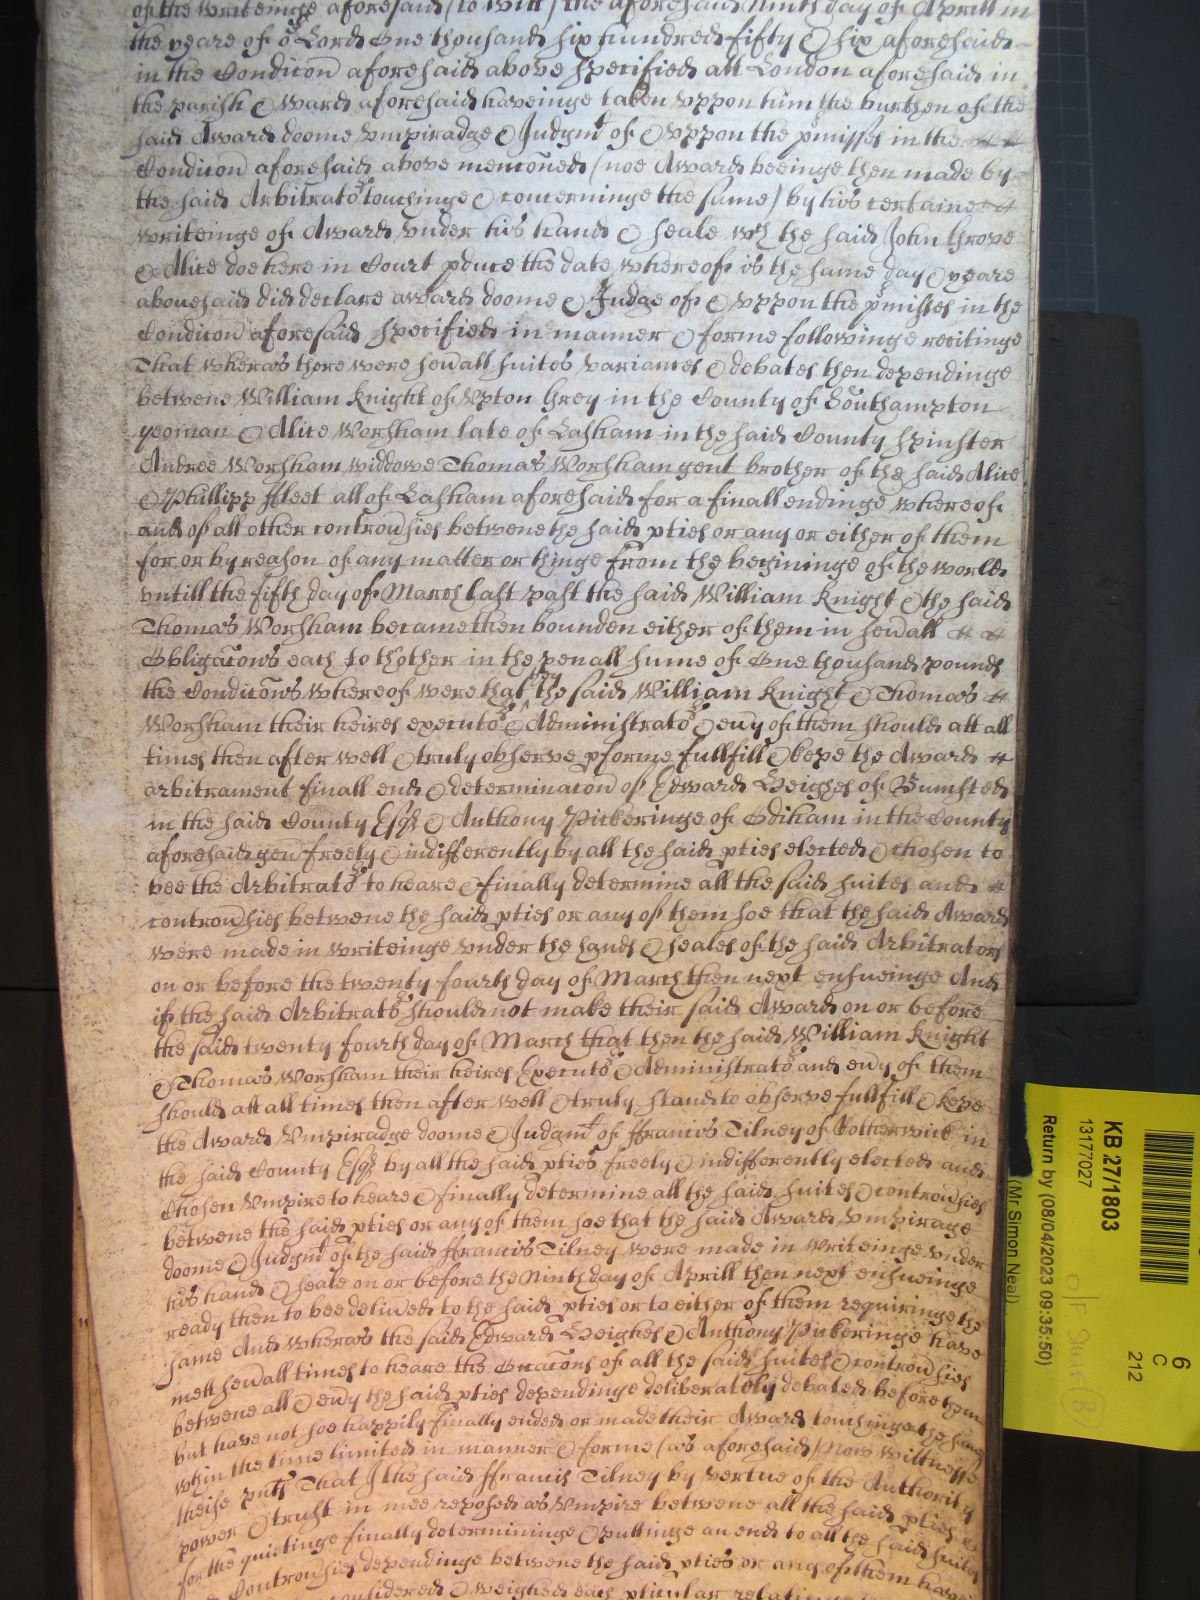 of the writeinge aforesaid (to witt) the aforesaid Ninth day of Aprill in
the yeare of or Lord One thousand six hundred fifty & six aforesaid
in the Condicon aforesaid above specified att London aforesaid in
the parish & ward aforesaid haveinge taken vppon him the burthen of the
said Award doome vmpiradge & Judgmt of & vppon the pmisses in the
Condicon aforesaid above menconed (noe Award beeinge then made by
the said Arbitratrs touchinge & concerninge the same) by his certaine
writeinge of Award vnder his hand & seale wch the said John Throve
& Alice doe here in Court pduce the date whereof is the same day & yeare
abouesaid did declare award doome & Judge of & vppon the pmisses in the
Condicon aforesaid specified in manner & forme followinge recitinge
That whereas there were seuall suites variances & debates then dependinge
betwene William Knight of Vpton Grey in the County of Southampton
yeoman & Alice Worsham late of Lasham in the said County spinster
Andree Worsham widdowe Thomas Worsham gent brother of the said Alice
& Phillipp ffleet all of Lasham aforesaid for a finall endinge whereof
and of all other controusies betwene the said pties or any or either of them
for or by reason of any matter or thinge from the begininge of the world
vntill the fifth day of March last past the said William Knight & the said
Thomas Worsham became then bounden either of them in seuall
Obligacons each to thother in the penall sume of One thousand pounds
the Condicons whereof were that the said William Knight & Thomas
Worsham their heires executors & Administratrs & euy of them should att all
times then after well & truly observe pforme fullfill & kepe the Award
arbitrament finall end & determinacon of Edward Heighes of Bumsted
in the said County Esqr & Anthony Pickeringe of Odiham in the County
aforesaid gen freely & indifferently by all the said pties elected & chosen to
bee the Arbitratrs to heare & finally determine all the said suites and
controusies betwene the said pties or any of them soe that the said Award
were made in writeinge vnder the hands & seales of the said Arbitrators
on or before the twenty fourth day of March then next ensueinge And
if the said Arbitratrs should not make their said Award on or before
the said twenty fourth day of March that then the said William Knight
& Thomas Worsham their heires Executrs & Administratrs and euy of them
should att all times then after well & truly stand to observe fullfill & kepe
the Award Vmpiradge doome & Judgmt of ffrancis Tilney of Rotherwick in
the said County Esqr by all the said pties freely & indifferently elected and
chosen Vmpire to heare & finally determine all the said suites & controusies
betwene the said pties or any of them soe that the said Award vmpirage
doome & Judgmt of the said ffrancis Tilney were made in writeinge vnder
his hand & seale on or before the Ninth day of Aprill then next ensueinge
ready then to bee deliued to the said pties or to either of them requiringe the
same And whereas the said Edward Heighes & Anthony Pickeringe have
mett seuall times to heare the of all the said suites & controusies
betwene all & euy the said pties dependinge deliberately debated before them
but have not soe happily finally ended or made their Award touchinge the same
wthin the time limited in manner & forme (as aforesaid) Now wittnesse
theise pnts That I the said ffrancis Tilney by vertue of the Authority
power & trust in mee reposed as Vmpire betwene all the said pties
for the quietinge finally determininge & puttinge an end to all the said suites
& Controusies dependinge betwene the said pties or any of them have
considered & weighed each pticular
KB 27/1803
13177027
Return by (08/04/2023 09:35:50)
(Mr Simon Neal)
6
C
212